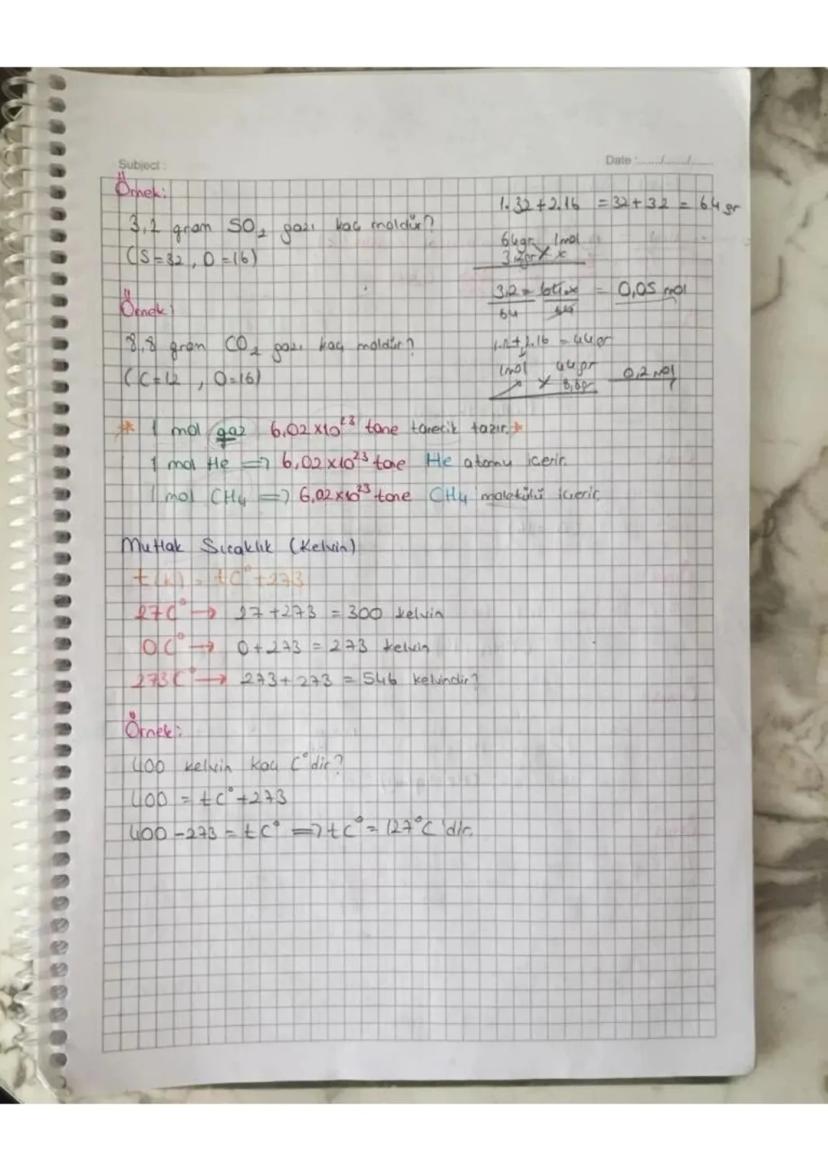 Subject :
Date : ....../....../......
Örnek:
3,2 gram SO₂ gazı kaç moldür?
(S=32, O=16)
1.32+2.16 = 32+32 = 64 gr
64gr 1mol
3,2gr x
3,2 = 64.x = 0,05 mol
64 64
Örnek:
8,8 gram CO₂ gazı kaç moldür?
(C=12, O=16)
= 44gr
1mol 44gr
x 8,8gr 0,2 mol
* 1 mol gaz 6,02x10²³ tane tanecik taşır. *
1 mol He => 6,02x10²³ tane He atomu içerir.
1 mol CH₄ => 6,02x10²³ tane CH₄ molekülü içerir.
Mutlak Sıcaklık (Kelvin)
t(K) = tC°+273
27C° → 27+273 = 300 kelvin
0C° → 0+273 = 273 kelvin
273C° → 273+273 = 546 kelvindir?
Örnek:
400 kelvin kaç C°dir?
400 = tC°+273
400-273 = tC° => tC° = 127°C'dir.